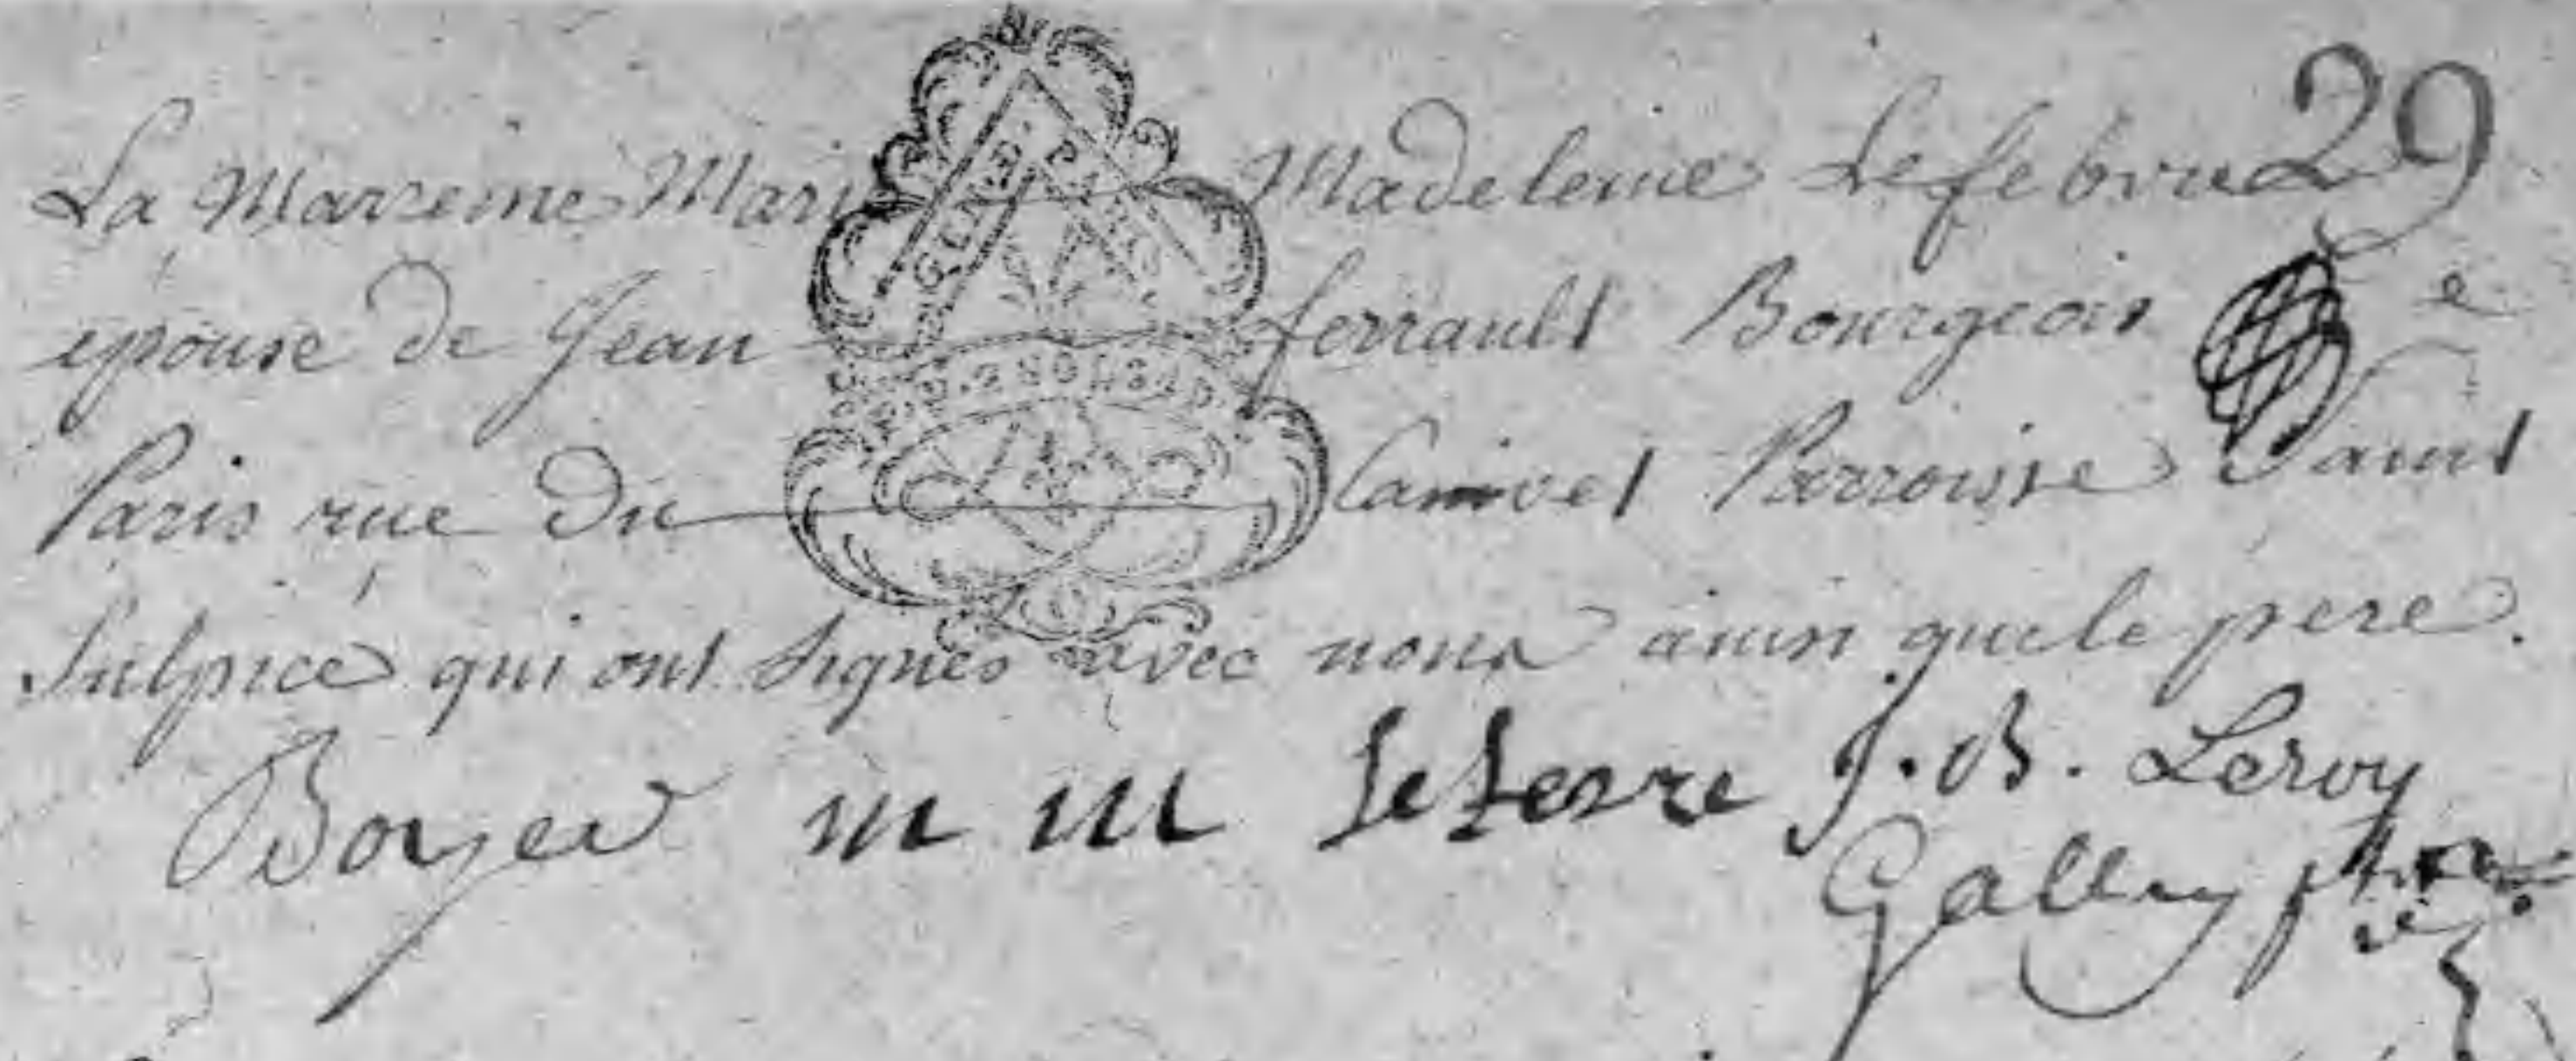 29
La Marreine Marie Madeleine Lefebvre
epouse de Jean ferrault Bourgeois de
Paris rue du Canivet Parroisse Saint
Sulpice qui ont signés avec nous ainsi que le pere.
Boyer m m lefevre J. B. Leroy
Gallery ptre